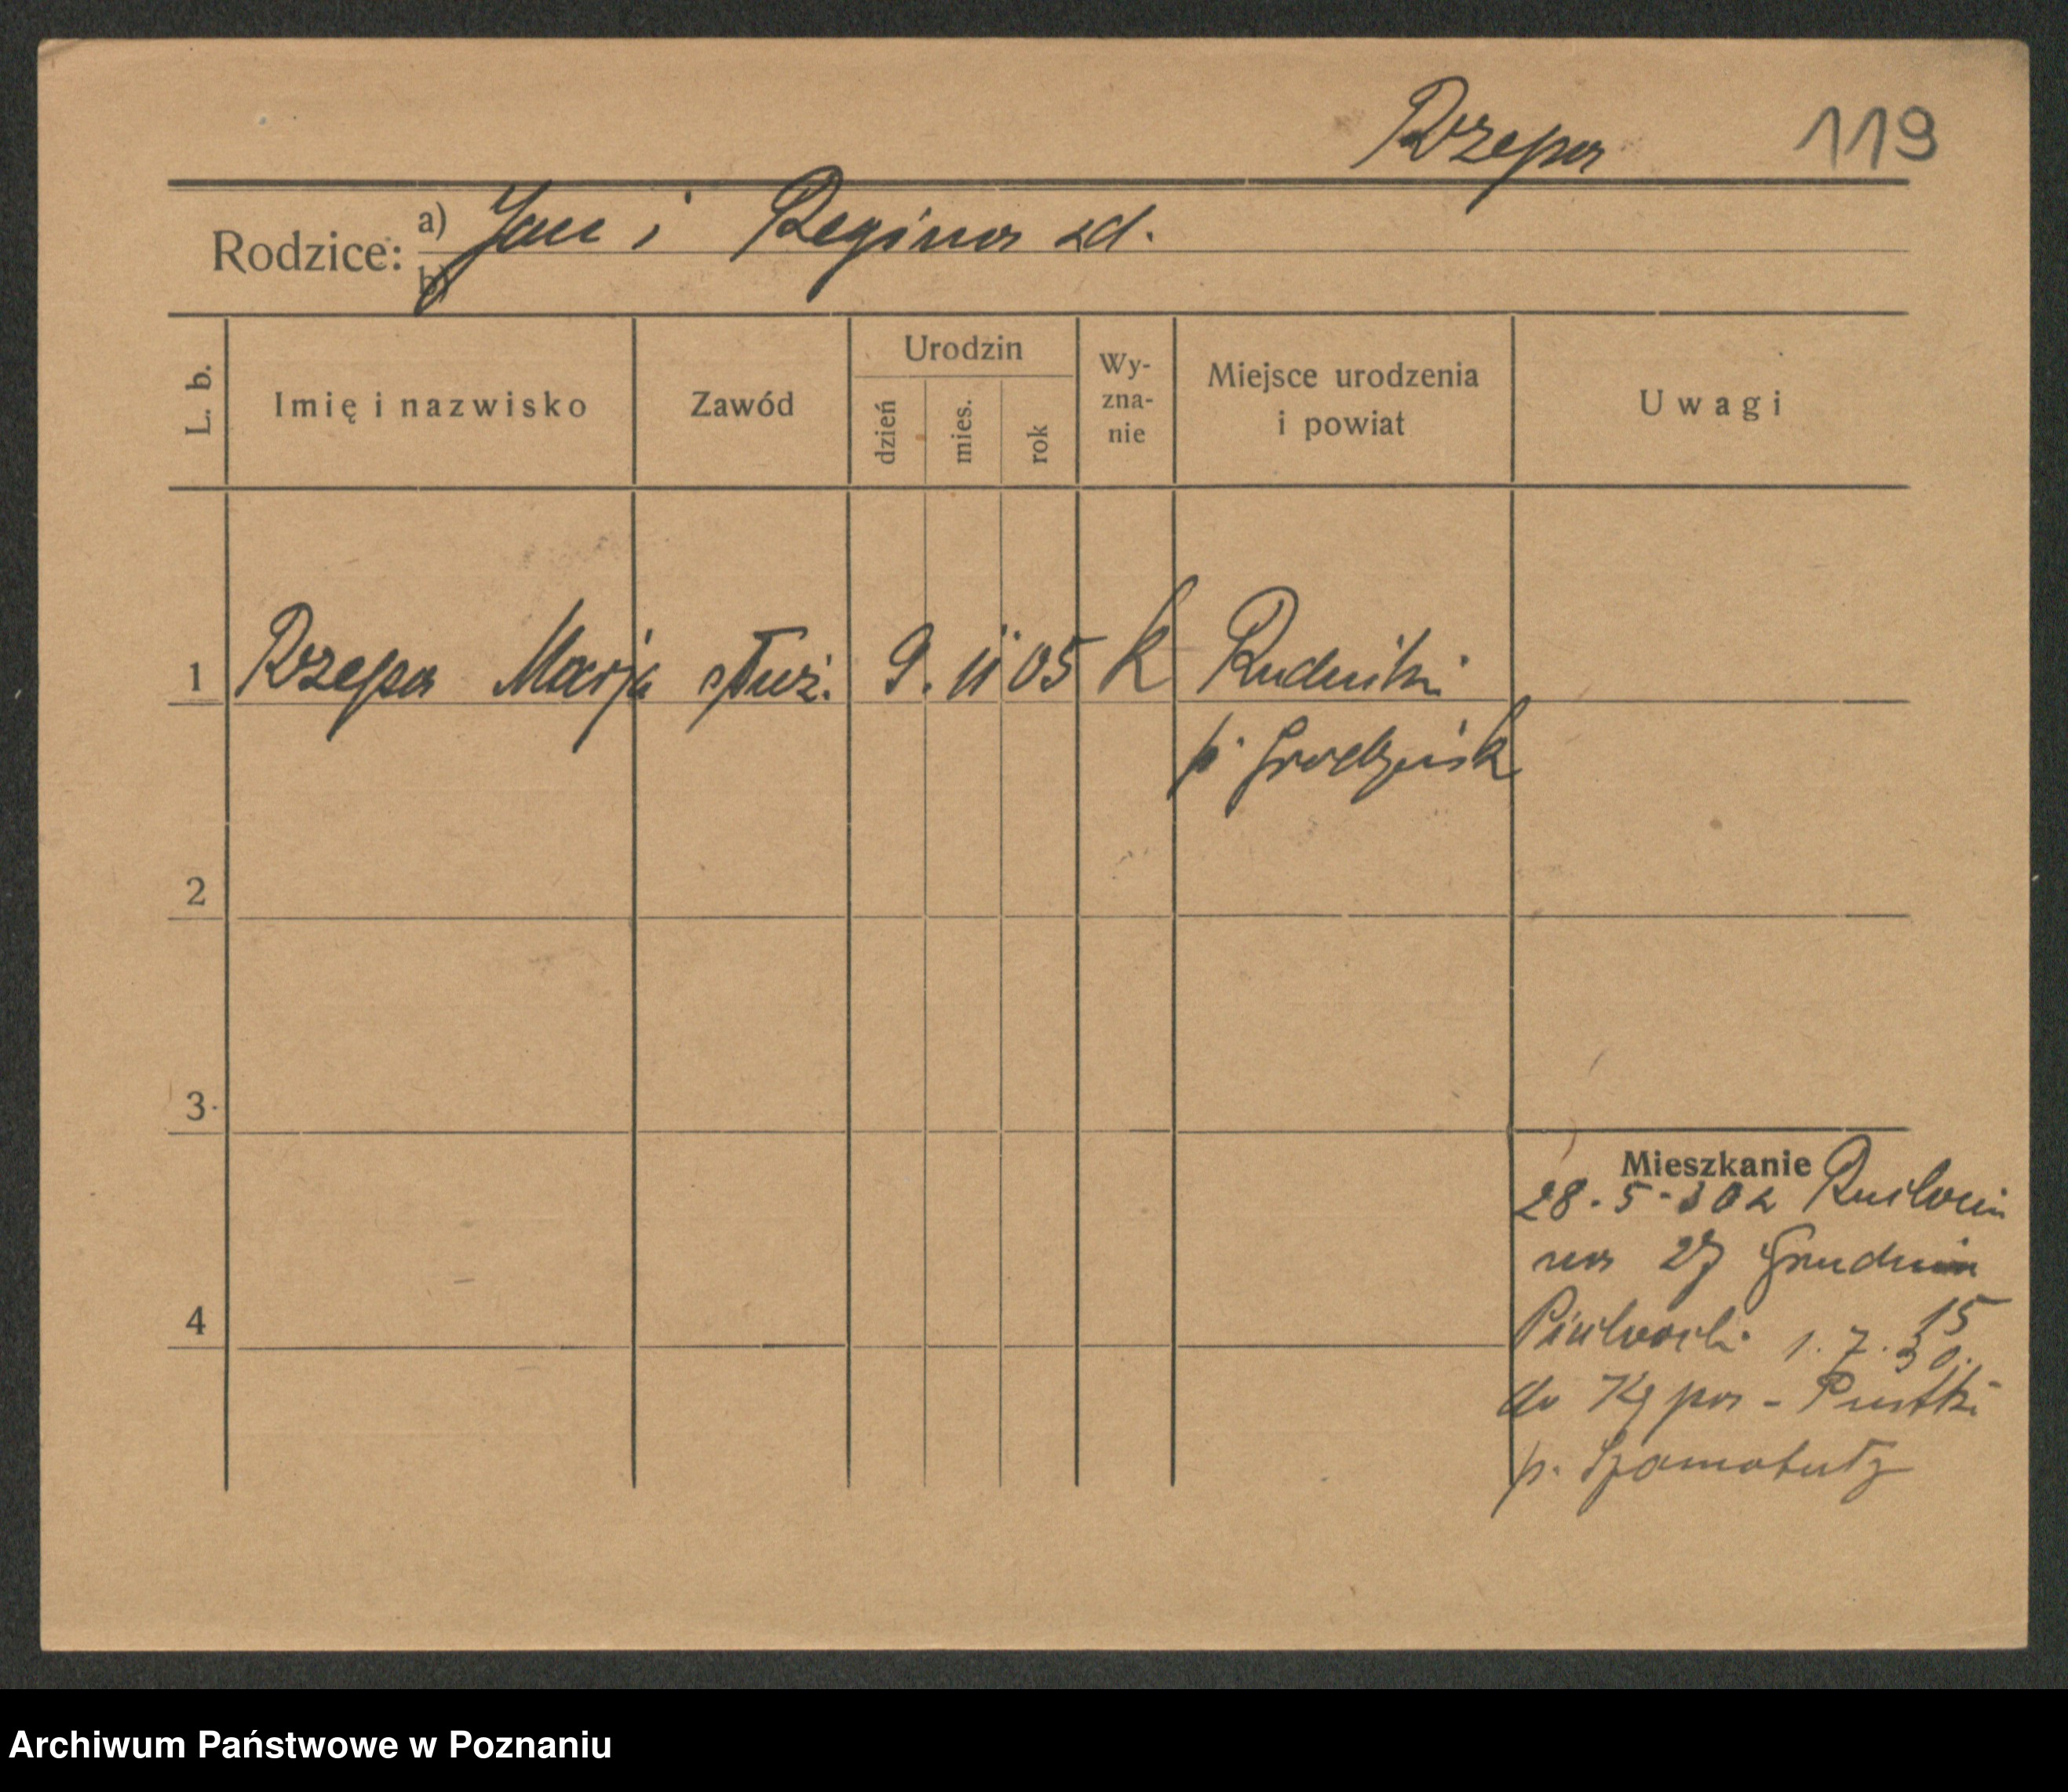 Rzepa 119
Rodzice: a) Jan i Regina zd.
b)
L. b.
Imię i nazwisko
Zawód
Urodzin
dzień
mies.
rok
Wy-
zna-
nie
Miejsce urodzenia
i powiat
Uwagi
1 Rzepa Marja służ. 9. 11 05 K Rudniki
p. Grodzisk
2
3
4
Mieszkanie
28.5.30 z
na 27 Grudnia
15
1.7.30.
do
p. Szamotuły
Archiwum Państwowe w Poznaniu